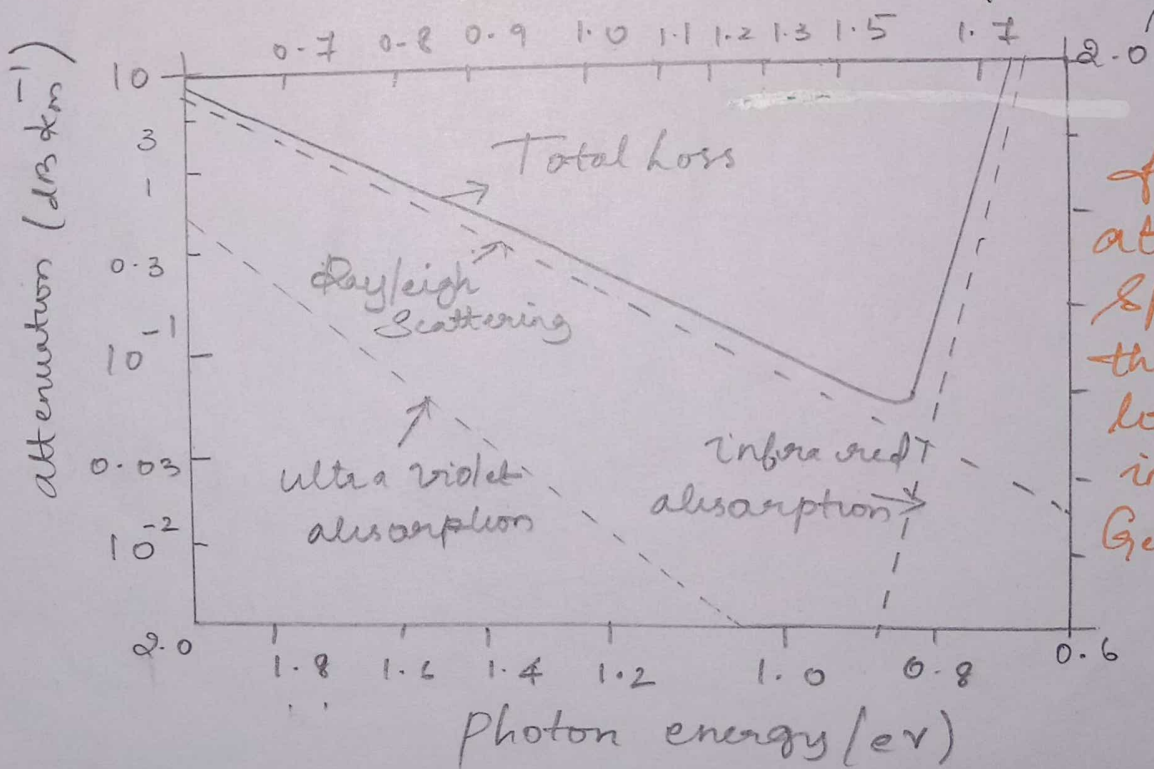 0.7 0.8 0.9 1.0 1.1 1.2 1.3 1.5 1.7 2.0
attenuation (dB km⁻¹)
10
3
1
0.3
10⁻¹
0.03
10⁻²
Total Loss
Rayleigh
Scattering
ultra violet
absorption
infra red
absorption
2.0 1.8 1.6 1.4 1.2 1.0 0.8 0.6
Photon energy (ev)